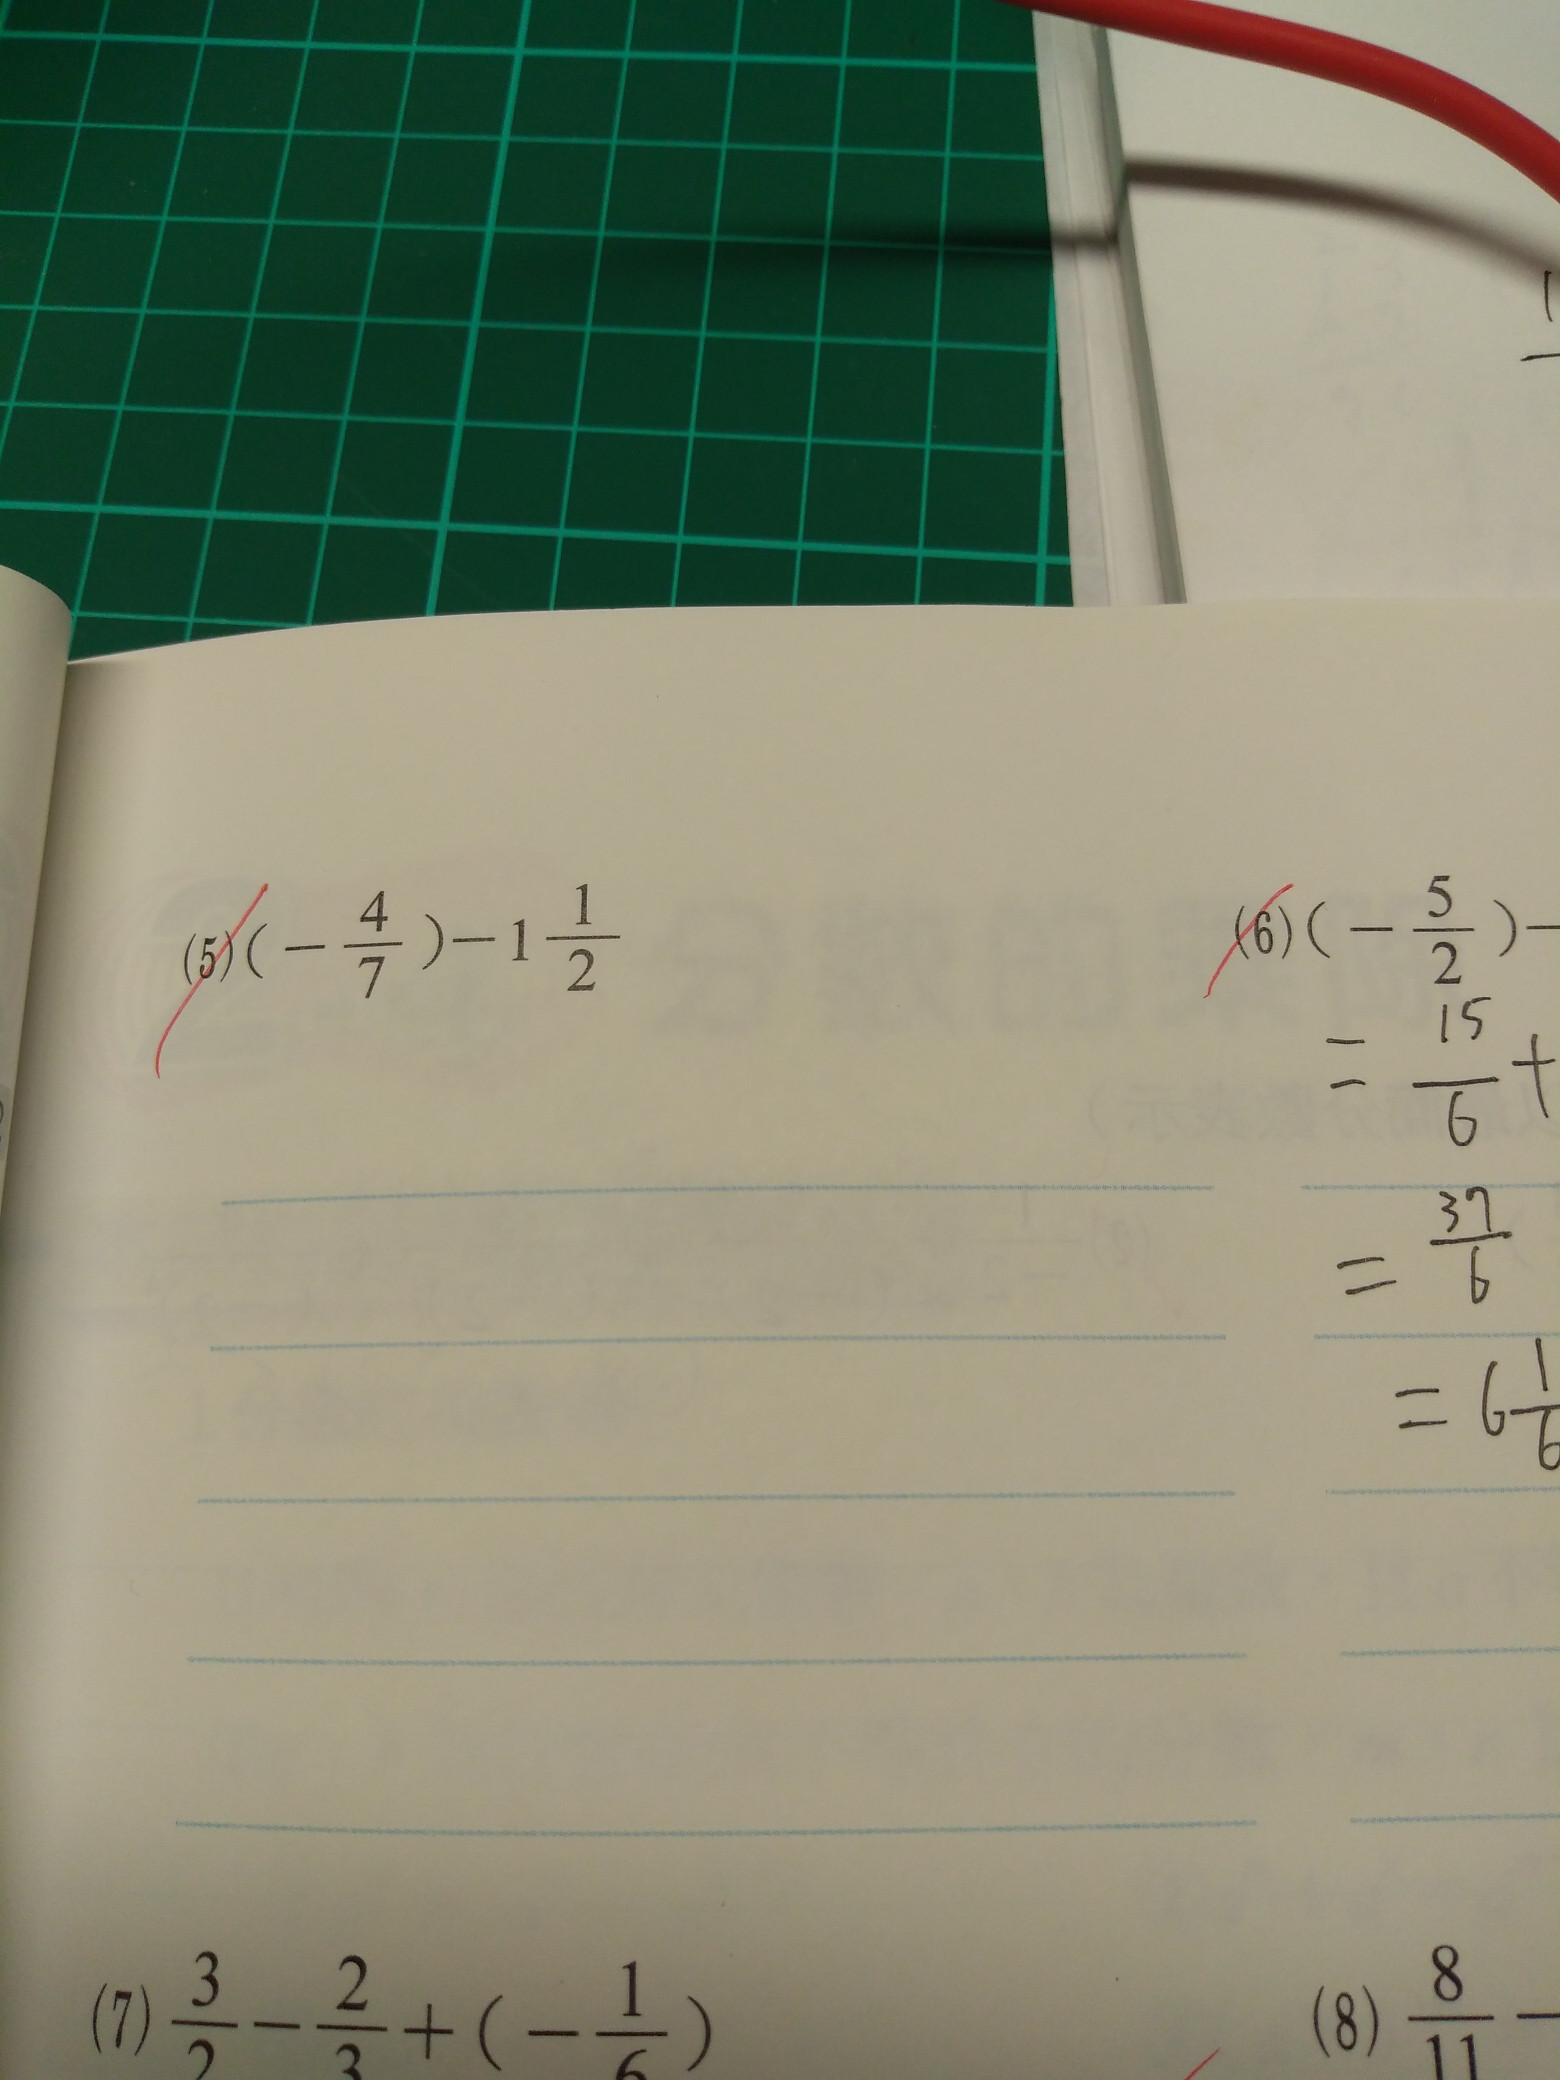 (5)(−4/7)−1 1/2
(6)(−5/2)−
= 15/6 +
= 37/6
= 6 1/6
(7) 3/2 − 2/3 + (−1/6)
(8) 8/11 −